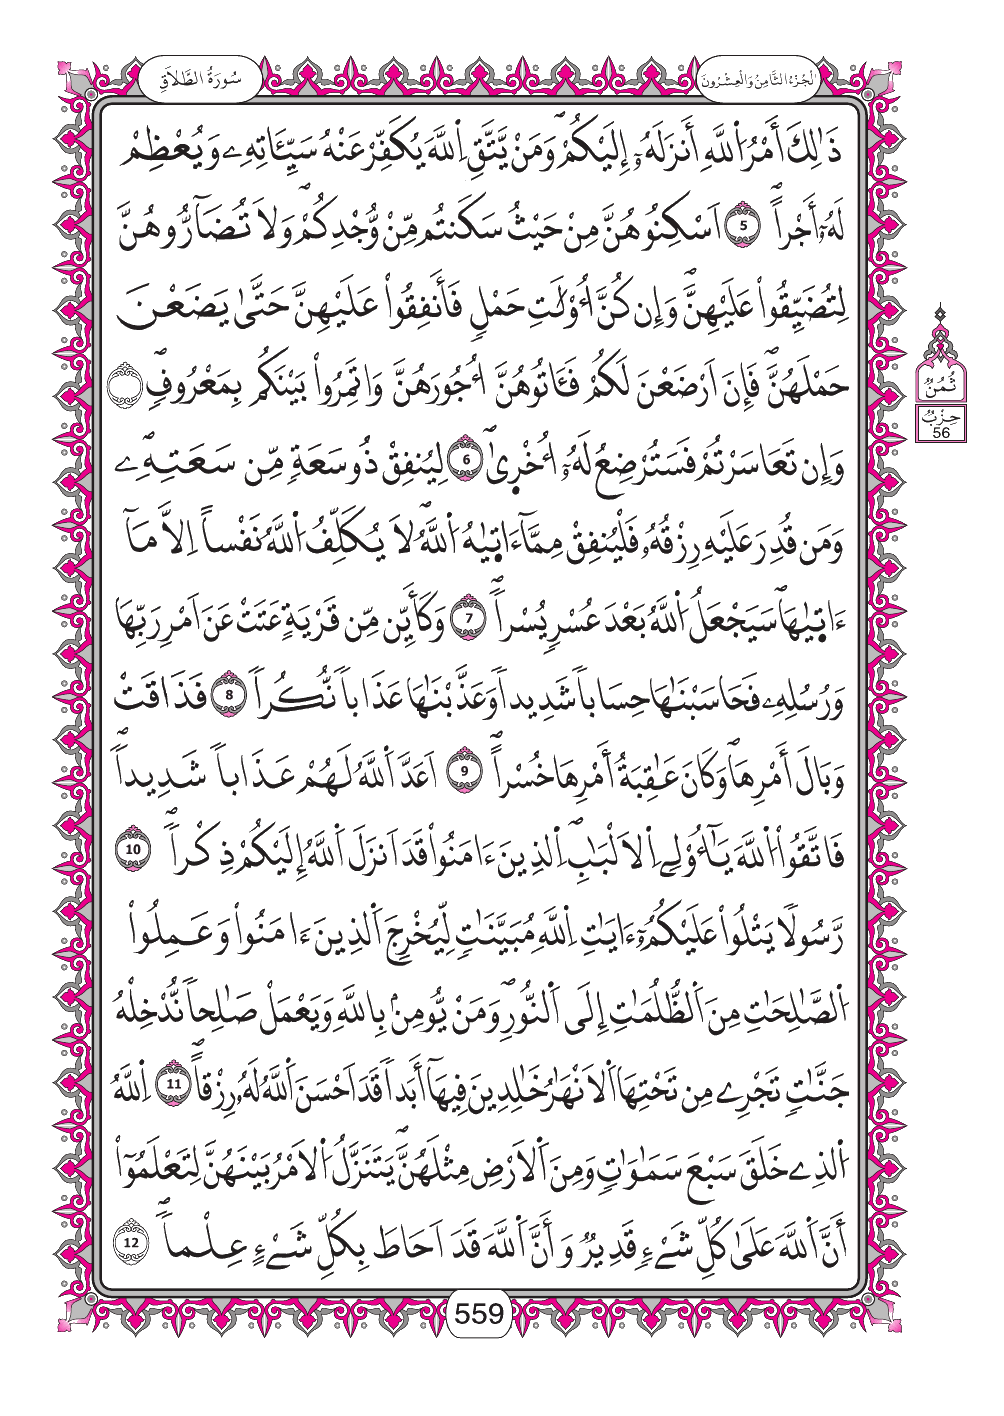 سُورَةُ الطَّلَاقِ
الجُزْءُ الثَّامِنُ وَالْعِشْرُونَ
ذَٰلِكَ أَمْرُ اُ۬للَّهِ أَنزَلَهُۥٓ إِلَيْكُمْۖ وَمَنْ يَّتَّقِ اِ۬للَّهَ يُكَفِّرْ عَنْهُ سَيِّـَٔاتِهِۦ وَيُعْظِمْ
لَهُۥٓ أَجْراًۖ 5 اَسْكِنُوهُنَّ مِنْ حَيْثُ سَكَنتُم مِّنْ وُّجْدِكُمْۖ وَلَا تُضَآرُّوهُنَّ
لِتُضَيِّقُواْ عَلَيْهِنَّۖ وَإِن كُنَّ أُوْلَٰتِ حَمْلٖ فَأَنفِقُواْ عَلَيْهِنَّ حَتَّىٰ يَضَعْنَ
حَمْلَهُنَّۖ فَإِنَ اَرْضَعْنَ لَكُمْ فَـَٔاتُوهُنَّ أُجُورَهُنَّ وَاتَمِرُواْ بَيْنَكُم بِمَعْرُوفٖۖ
وَإِن تَعَاسَرْتُمْ فَسَتُرْضِعُ لَهُۥٓ أُخْر۪ىٰۖ 6 لِيُنفِقْ ذُو سَعَةٖ مِّن سَعَتِهِۦۖ
وَمَن قُدِرَ عَلَيْهِ رِزْقُهُۥ فَلْيُنفِقْ مِمَّآ ءَات۪يٰهُ اُ۬للَّهُۖ لَا يُكَلِّفُ اُ۬للَّهُ نَفْساً اِلَّا مَآ
ءَات۪يٰهَاۖ سَيَجْعَلُ اُ۬للَّهُ بَعْدَ عُسْرٖ يُسْراًۖ 7 وَكَأَيِّن مِّن قَرْيَةٍ عَتَتْ عَنَ اَمْرِ رَبِّهَا
وَرُسُلِهِۦ فَحَاسَبْنَٰهَا حِسَاباٗ شَدِيداٗ وَعَذَّبْنَٰهَا عَذَاباٗ نُّكُراٗ 8 فَذَاقَتْ
وَبَالَ أَمْرِهَاۖ وَكَانَ عَٰقِبَةُ أَمْرِهَا خُسْراًۖ 9 اَعَدَّ اَ۬للَّهُ لَهُمْ عَذَاباٗ شَدِيداٗۖ
فَاتَّقُواْ اُ۬للَّهَ يَٰٓأُوْلِے اِ۬لَالْبَٰبِۖ اِ۬لذِينَ ءَامَنُواْ قَدَ اَنزَلَ اَ۬للَّهُ إِلَيْكُمْ ذِكْراٗۖ 10
رَّسُولاٗ يَتْلُواْ عَلَيْكُمُۥٓ ءَايَٰتِ اِ۬للَّهِ مُبَيَّنَٰتٖ لِّيُخْرِجَ اَ۬لذِينَ ءَامَنُواْ وَعَمِلُواْ
اُ۬لصَّٰلِحَٰتِ مِنَ اَ۬لظُّلُمَٰتِ إِلَى اَ۬لنُّورِۖ وَمَنْ يُّومِنۢ بِاللَّهِ وَيَعْمَلْ صَٰلِحاٗ نُّدْخِلْهُ
جَنَّٰتٖ تَجْرِے مِن تَحْتِهَا اَ۬لَانْهَٰرُ خَٰلِدِينَ فِيهَآ أَبَداٗ قَدَ اَحْسَنَ اَ۬للَّهُ لَهُۥ رِزْقاًۖ 11 اِ۬للَّهُ
اُ۬لذِے خَلَقَ سَبْعَ سَمَٰوَٰتٖ وَمِنَ اَ۬لَارْضِ مِثْلَهُنَّۖ يَتَنَزَّلُ اُ۬لَامْرُ بَيْنَهُنَّ لِتَعْلَمُوٓاْ
أَنَّ اَ۬للَّهَ عَلَىٰ كُلِّ شَےْءٖ قَدِيرٞ وَأَنَّ اَ۬للَّهَ قَدَ اَحَاطَ بِكُلِّ شَےْءٍ عِلْماٗۖ 12
ثُمُنُ
حِزْبُ
56
559